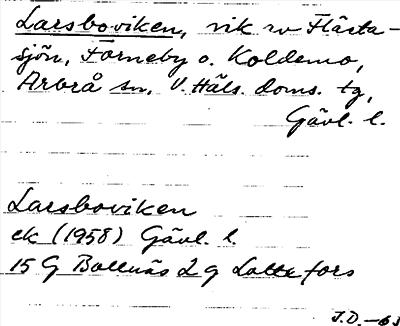 Larsboviken, vik av Flästa-
sjön, Forneby o. Koldemo,
Arbrå sn, V. Häls. doms. tg,
Gävl. l.
Larsboviken
ek (1958) Gävl. l.
15 G Bollnäs 2 g Lottefors
J.D. -63